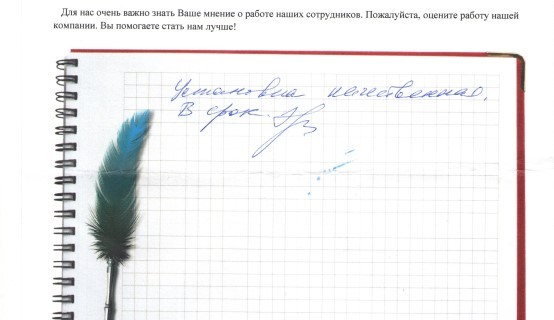 Для нас очень важно знать Ваше мнение о работе наших сотрудников. Пожалуйста, оцените работу нашей
компании. Вы помогаете стать нам лучше!
Установка качественная.
В срок.